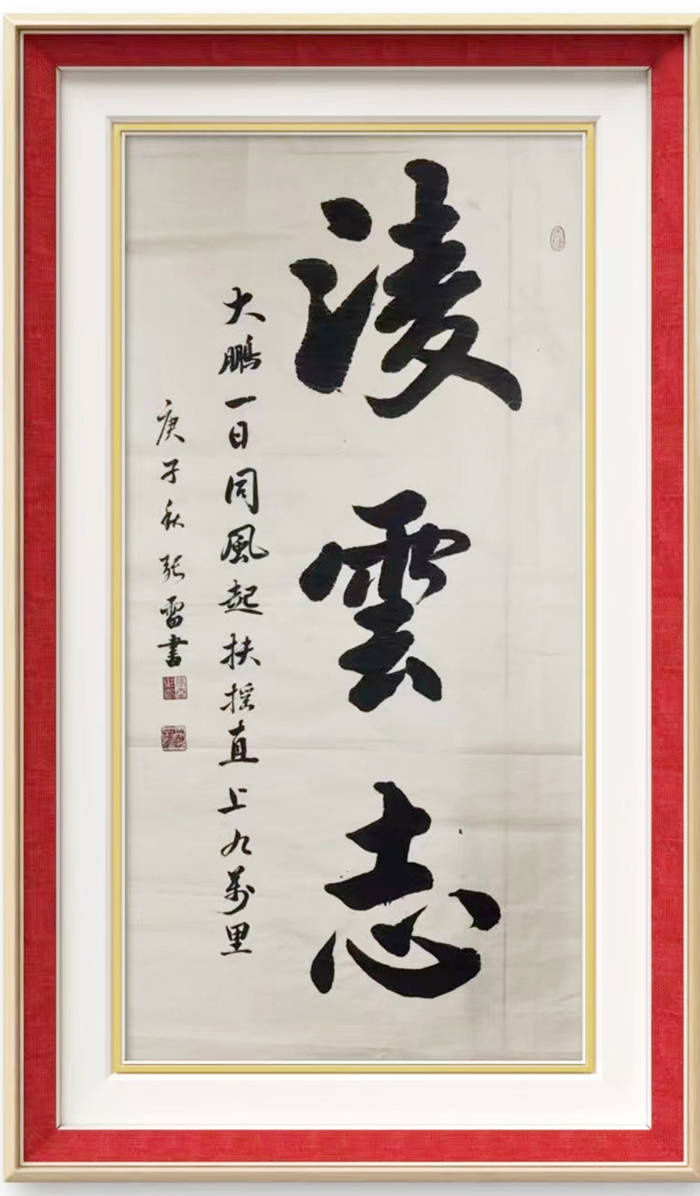 淩雲志
大鵬一日同風起扶摇直上九萬里
庚子秋張雷書